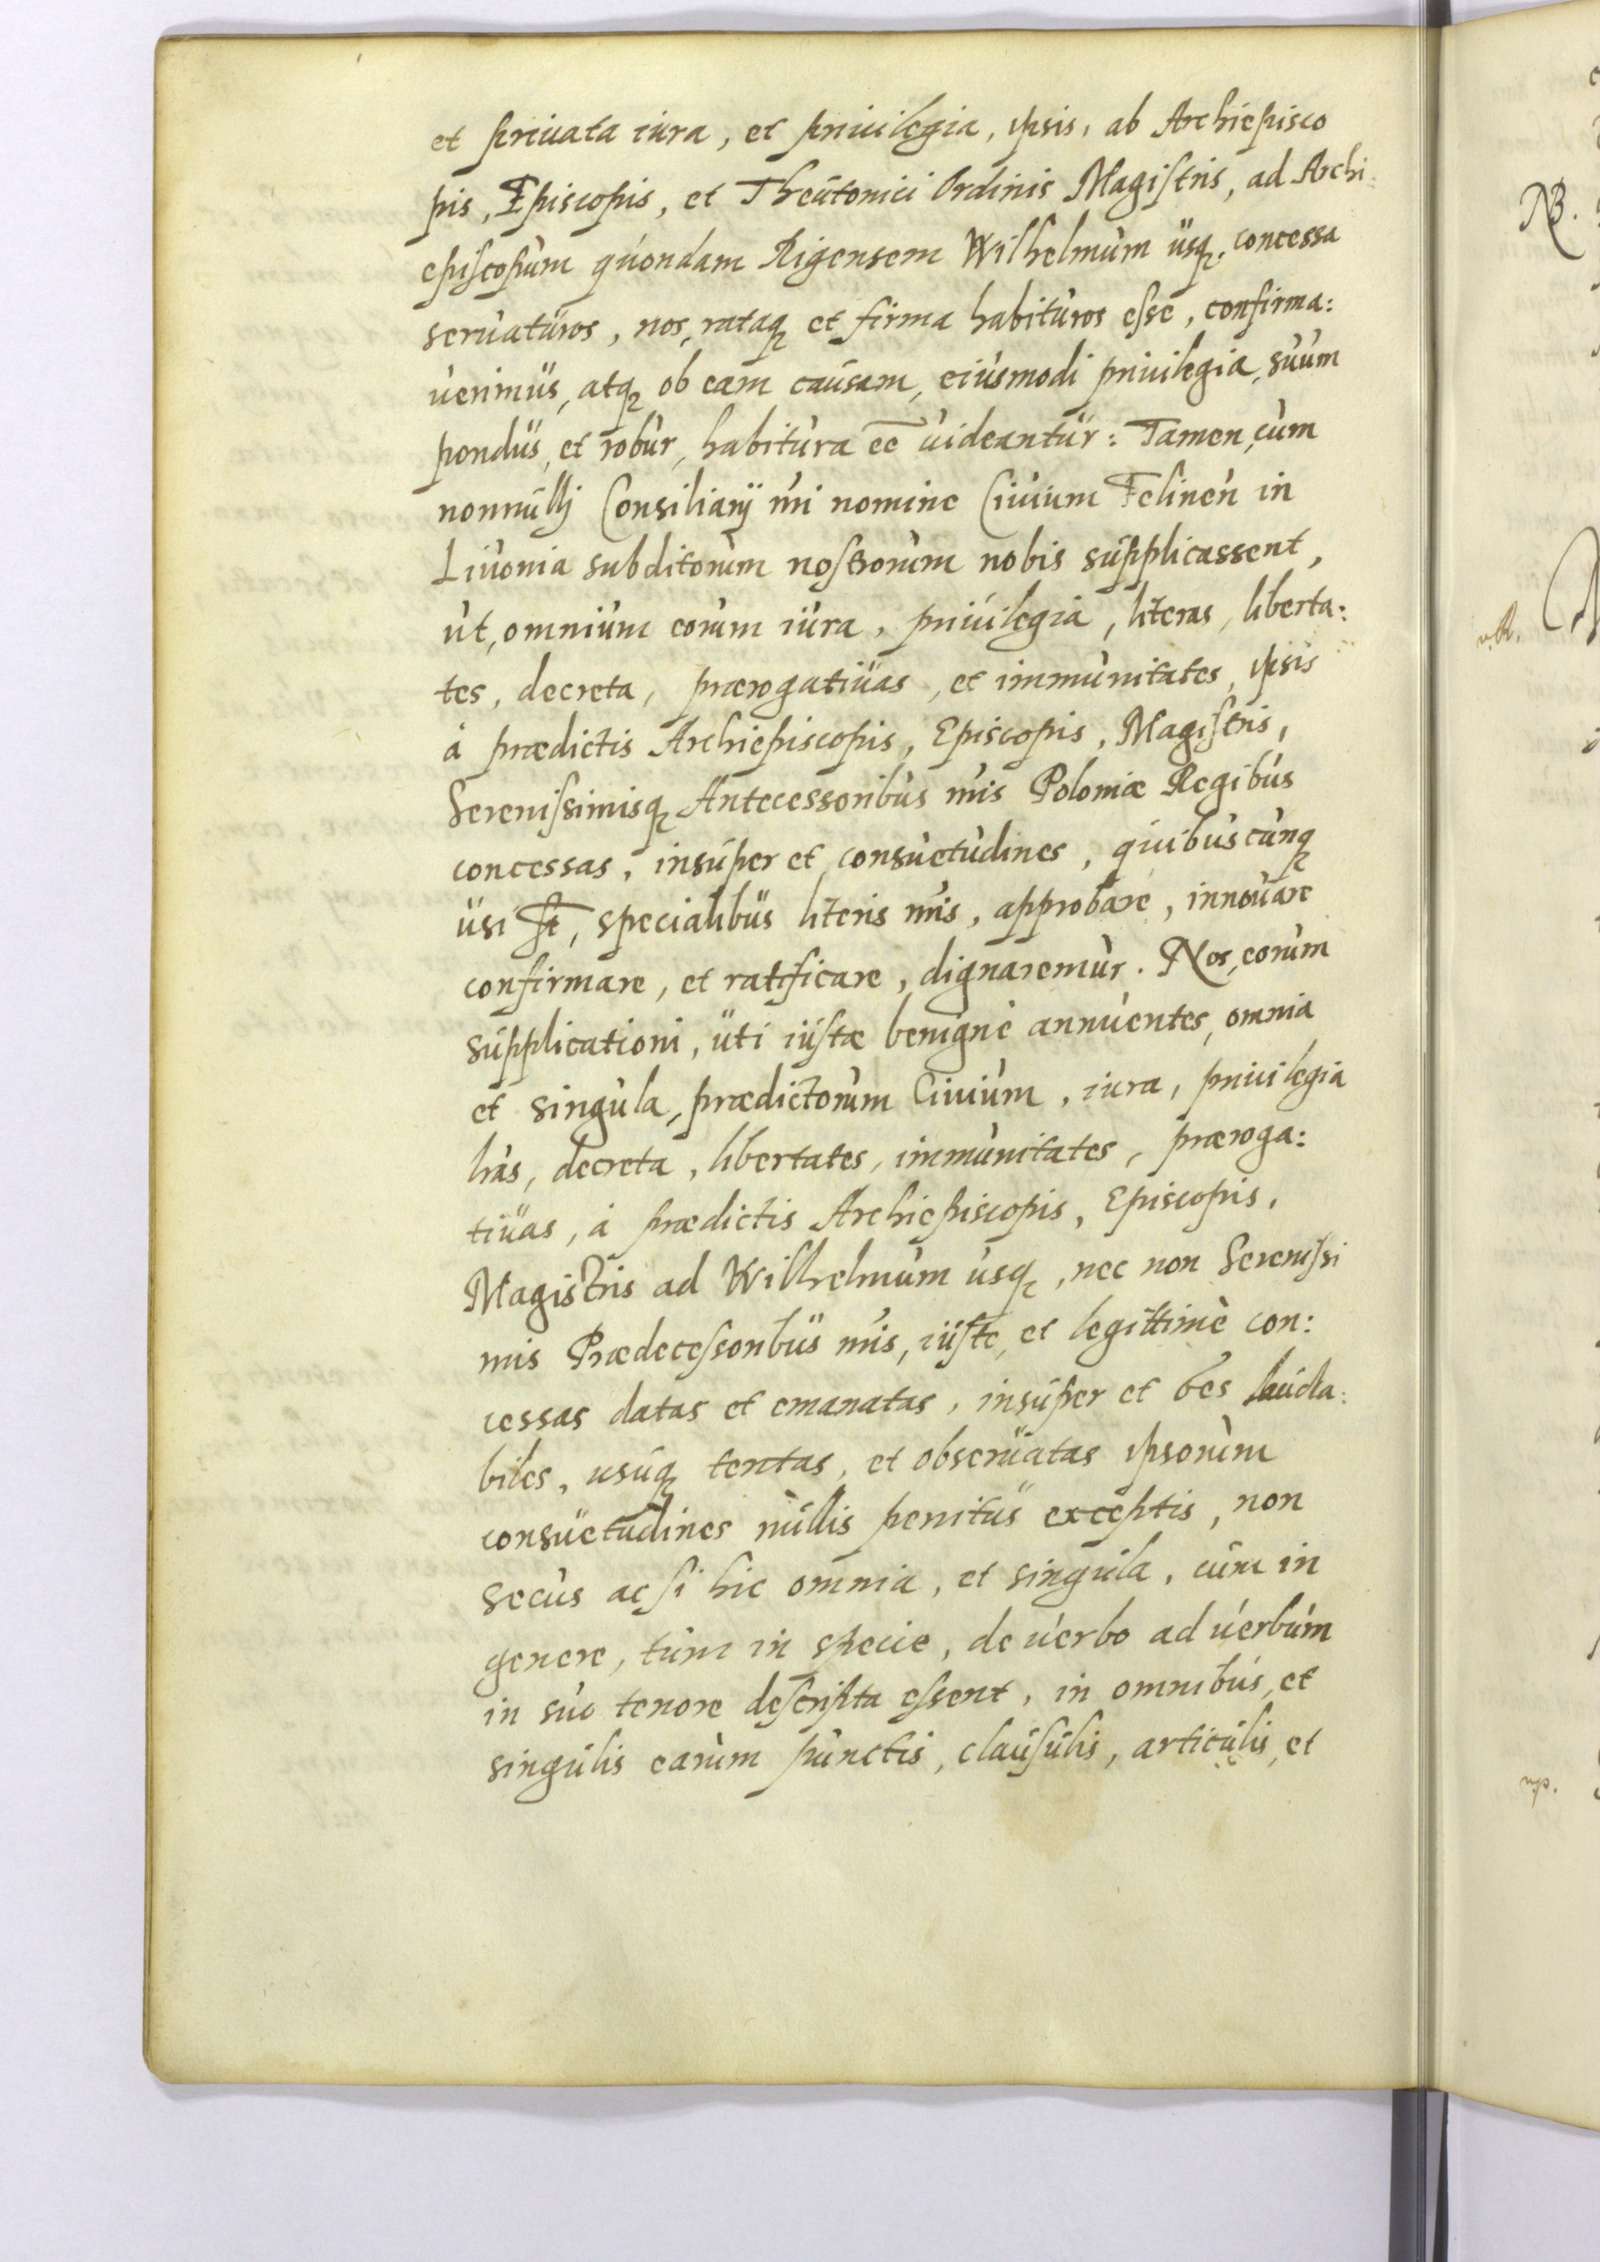 et priuata iura, et priuilegia, ipsis, ab Archiepisco
pis, Episcopis, et Theutonici Ordinis Magistris, ad Archi:
episcopum quondam Rigensem Wilhelmum usq; concessa
seruaturos, nos, rataq; et firma habituros esse, confirma:
uerimus, atq; ob eam causam, eiusmodi priuilegia, suum
pondus, et robur, habitura eē uideantur: Tamen, cum
nonnulli Consiliarij nri nomine Ciuium Felinen in
Liuonia subditorum nostrorum nobis supplicassent,
ut, omnium eorum iura, priuilegia, literas, liberta:
tes, decreta, prærogatiuas, et immunitates, ipsis
à prædictis Archiepiscopis, Episcopis, Magistris,
Serenissimisq; Antecessoribus nris Poloniæ Regibus
concessas, insuper et consuetudines, quibuscunq;
usi st, specialibus literis nris, approbare, innouare
confirmare, et ratificare, dignaremur. Nos, eorum
supplicationi, uti iustæ benignè annuentes, omnia
et singula, prædictorum Ciuium, iura, priuilegia
lras, decreta, libertates, immunitates, præroga:
tiuas, à prædictis Archiepiscopis, Episcopis,
Magistris ad Wilhelmum usq;, nec non Serenissi
mis Prædecessoribus nris, iuste, et legittimè con:
cessas datas et emanatas, insuper et oēs lauda:
biles, usuq; tentas, et obseruatas ipsorum
consuetudines nullis penitus exceptis, non
secus ac si hic omnia, et singula, cum in
genere, tum in specie, de uerbo ad uerbum
in suo tenore descripta essent, in omnibus, et
singulis earum punctis, clausulis, articulis, et
NB.